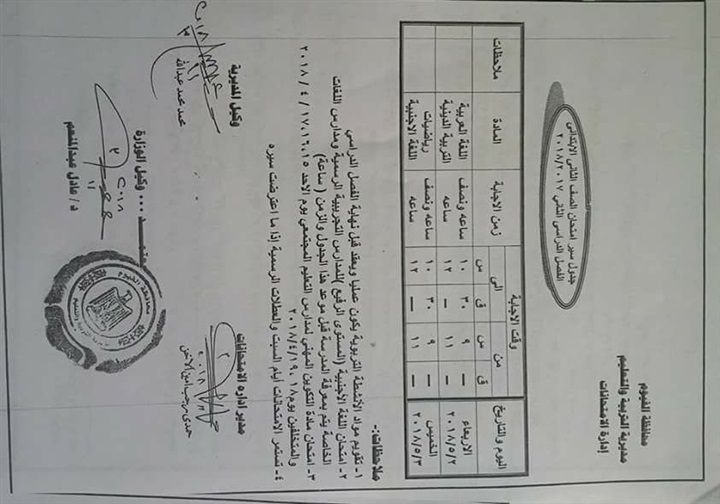 محافظة الفيوم
مديرية التربية والتعليم
إدارة الامتحانات
جدول سير امتحان الصف الثانى الابتدائى
الفصل الدراسى الثانى ٢٠١٨/٢٠١٧
اليوم والتاريخ وقت الاجابة زمن الاجابة المادة ملاحظات
من الى
ق س ق س
الاربعاء ٢٠١٨/٥/٢ — ٩ ٣٠ ١٠ ساعه ونصف اللغة العربية
— ١١ — ١٢ ساعه التربية الدينية
الخميس ٢٠١٨/٥/٣ — ٩ ٣٠ ١٠ ساعه ونصف رياضيات
— ١١ — ١٢ ساعه اللغة الاجنبية
ملاحظات:-
١- تقويم مواد الأنشطة التربوية يكون عمليا ويعقد قبل نهاية الفصل الدراسي
٢- امتحان اللغة الأجنبية (المستوى الرفيع) للمدارس التجريبية الرسمية ومدارس اللغات
الخاصة يتم بمعرفة المدرسة قبل موعد هذا الجدول والزمن (ساعة)
٣- امتحان مادة التكوين المهنى لمدارس التعليم المجتمعي يوم الاحد ١٧،١٦،١٥ / ٤ / ٢٠١٨
والمتخلفين يوم ١٨، ٢٠١٨/٤/١٩
٤- تستمر الامتحانات أيام السبت والعطلات الرسمية إذا ما اعترضت سيره
مدير إدارة الامتحانات
وكيل المديرية
محمد محمد عبدالله
يعتمد ... وكيل الوزارة
د/ عادل عبدالمنعم
محافظة الفيوم